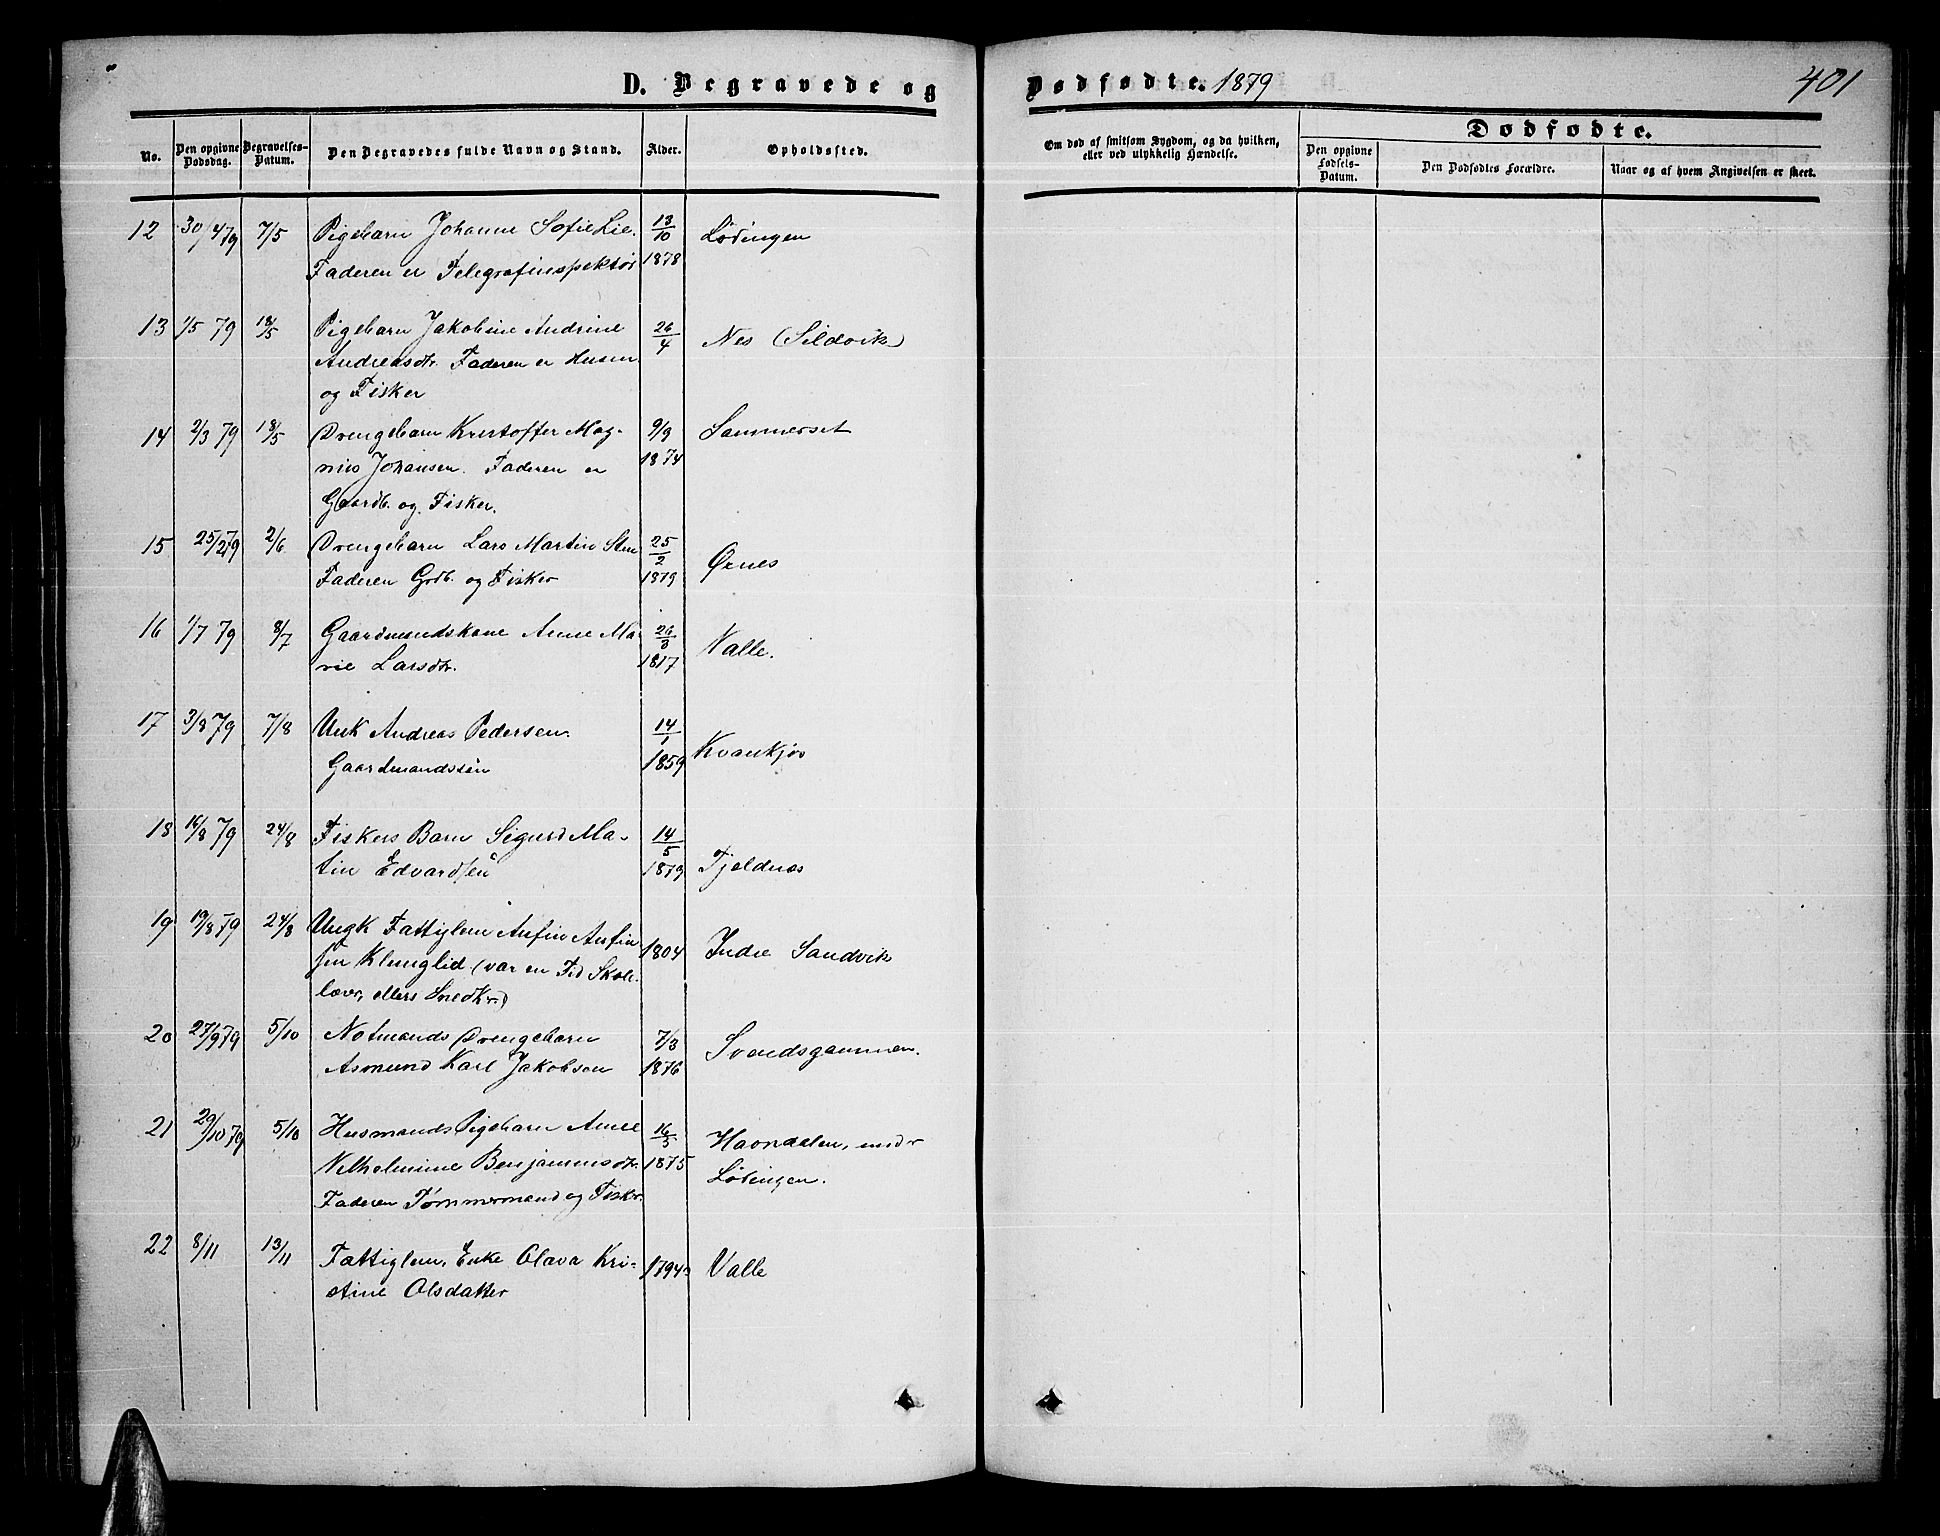 D. Begravede og
Dødfødte. 1879
401
No.
Den opgivne Dødsdag.
Begravelses-Datum.
Den Begravedes fulde Navn og Stand.
Alder.
Opholdssted.
Om død af smitsom Sygdom, og da hvilken, eller ved ulykkelig Hændelse.
Dødfødte.
Den opgivne Fødsels-Datum.
Den Dødfødtes Forældre.
Naar og af hvem Angivelsen er skeet.
12 30/4 79 7/5 Pigebarn Johanne Sofie Lie. 13/10 Lødingen
Faderen er Telegrafinspektør 1878
13 1/5 79 18/5 Pigebarn Jakobine Andrine 26/4 Nes (Sildvik)
Andreasdtr. Faderen er Husm
og Fisker
14 2/3 79 18/5 Drengebarn Kristoffer Mag- 9/9 Sammerset
nus Johansen. Faderen er 1874
Gaardb. og Fisker.
15 25/2 79 2/6 Drengebarn Lars Martin 25/2 Ørnes
Faderen Grdb. og Fisker 1879
16 1/7 79 8/7 Gaardmandskone Anne Ma- 26/3 Valle.
rie Larsdtr. 1817
17 3/8 79 7/8 Unk Andreas Pedersen. 14/1
Gaardmandssøn 1859 Kvankjøs
18 16/8 79 24/8 Fiskers Barn Sigurd Ma- 14/5
tin Edvardsen 1879 Tjeldnes
19 19/8 79 24/8 Ungk Fattiglem Anfin Anfin
sen Klenglid (var en Tid Skole- 1804 Indre Sandvik
lærer, ellers Snedkr.)
20 27/9 79 5/10 Notmands Drengebarn 7/3 Svendsgammen.
Asmund Karl Jakobsen 1876
21 20/10 79 5/10 Husmands Pigebarn Anne 16/5 Havndalen, under
Vilhelmine Benjaminsdtr. 1875 Lødingen.
Faderen Tømmermand og Fiskr.
22 8/11 13/11 Fattiglem, Enke Olava Kri- 1794 Valle
stine Olsdatter